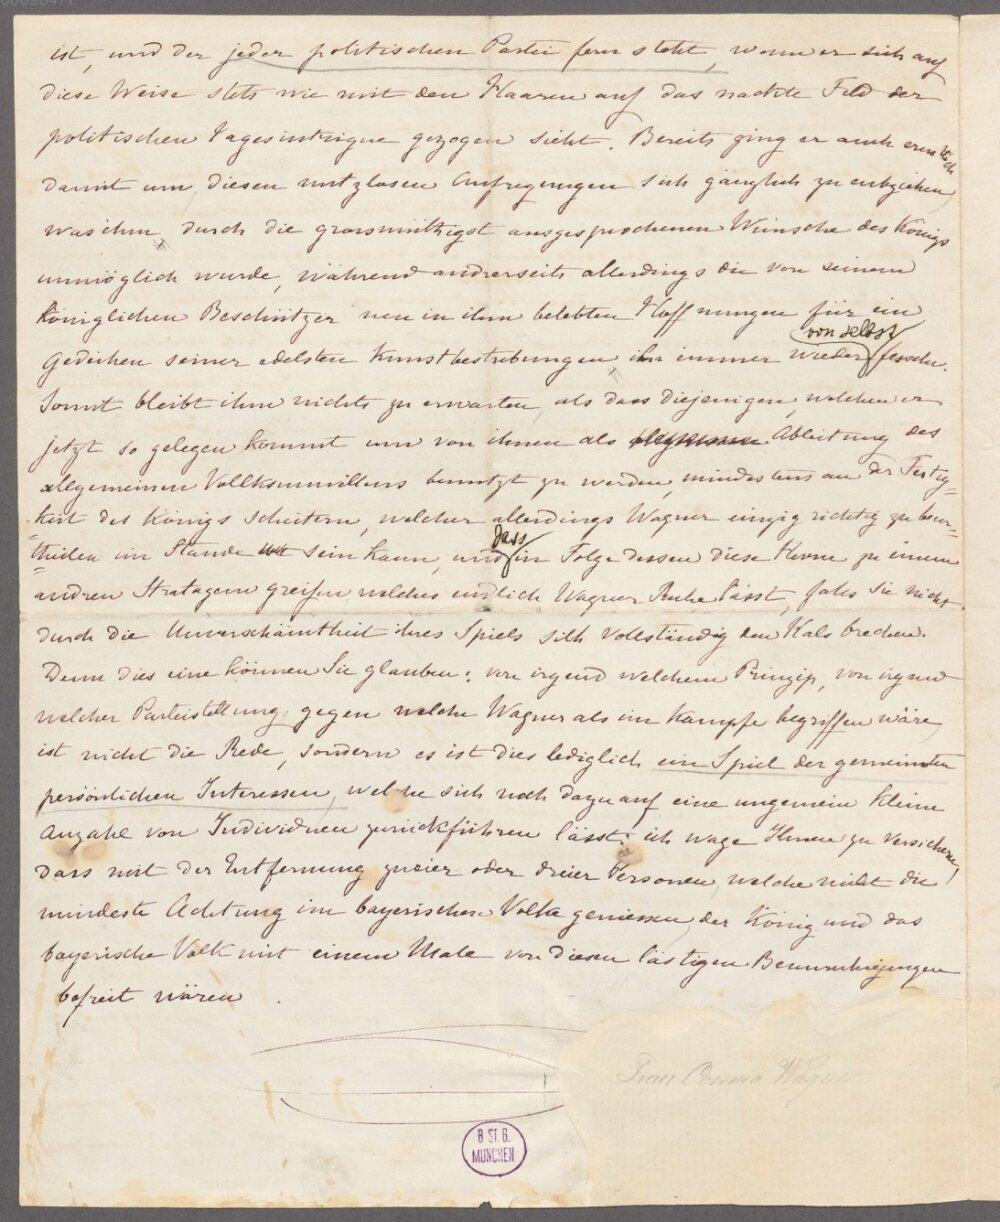 ist, und der jeder politischen Partei fern steht, wenn er sich auf
diese Weise stets wie mit den Haaren auf das nackte Feld der
politischen Tagesintrigue gezogen sieht. Bereits ging er auch ernstlich
damit um, diesen nutzlosen Aufregungen sich gänzlich zu entziehen,
was ihm durch die grossmüthigst ausgesprochenen Wünsche des Königs
unmöglich wurde, während andrerseits allerdings die von seinem
königlichen Beschützer neu in ihm belebten Hoffnungen für ein
von selbst
Gedeihen seiner edelsten Kunstbestrebungen ihn immer wieder fesseln.
Somit bleibt ihm nichts zu erwarten, als dass diejenigen, welchen er
jetzt so gelegen kommt um von ihnen als Ableitung des
allgemeinen Vollksunwillens benutzt zu werden, mindestens an der Festig=
keit des Königs scheitern, welcher allerdings Wagner einzig richtig zu beur=
dass
=theilen im Stande sein kann, und in Folge dessen diese Herrn zu einem
andren Stratagem greifen welches endlich Wagner Ruhe lässt, falls Sie nicht
durch die Unverschämtheit ihres Spiels sich vollständig den Hals brechen.
Denn dies eine können Sie glauben: von irgend welchem Prinzip, von irgend
welcher Parteistellung, gegen welche Wagner als im Kampfe begriffen wäre,
ist nicht die Rede, sondern es ist dies lediglich ein Spiel der gemeinsten
persönlichen Interessen, welche sich noch dazu auf eine ungemein kleine
Anzahl von Individuen zurückführen lässt: ich wage Ihnen zu versichern,
dass mit der Entfernung zweier oder dreier Personen, welche nicht die
mindeste Achtung im bayerischen Volke geniessen, der König und das
bayerische Volk mit einem Male von diesen lästigen Beunruhigungen
befreit wären.
Frau Cosima Wagner
B. St. B.
MÜNCHEN